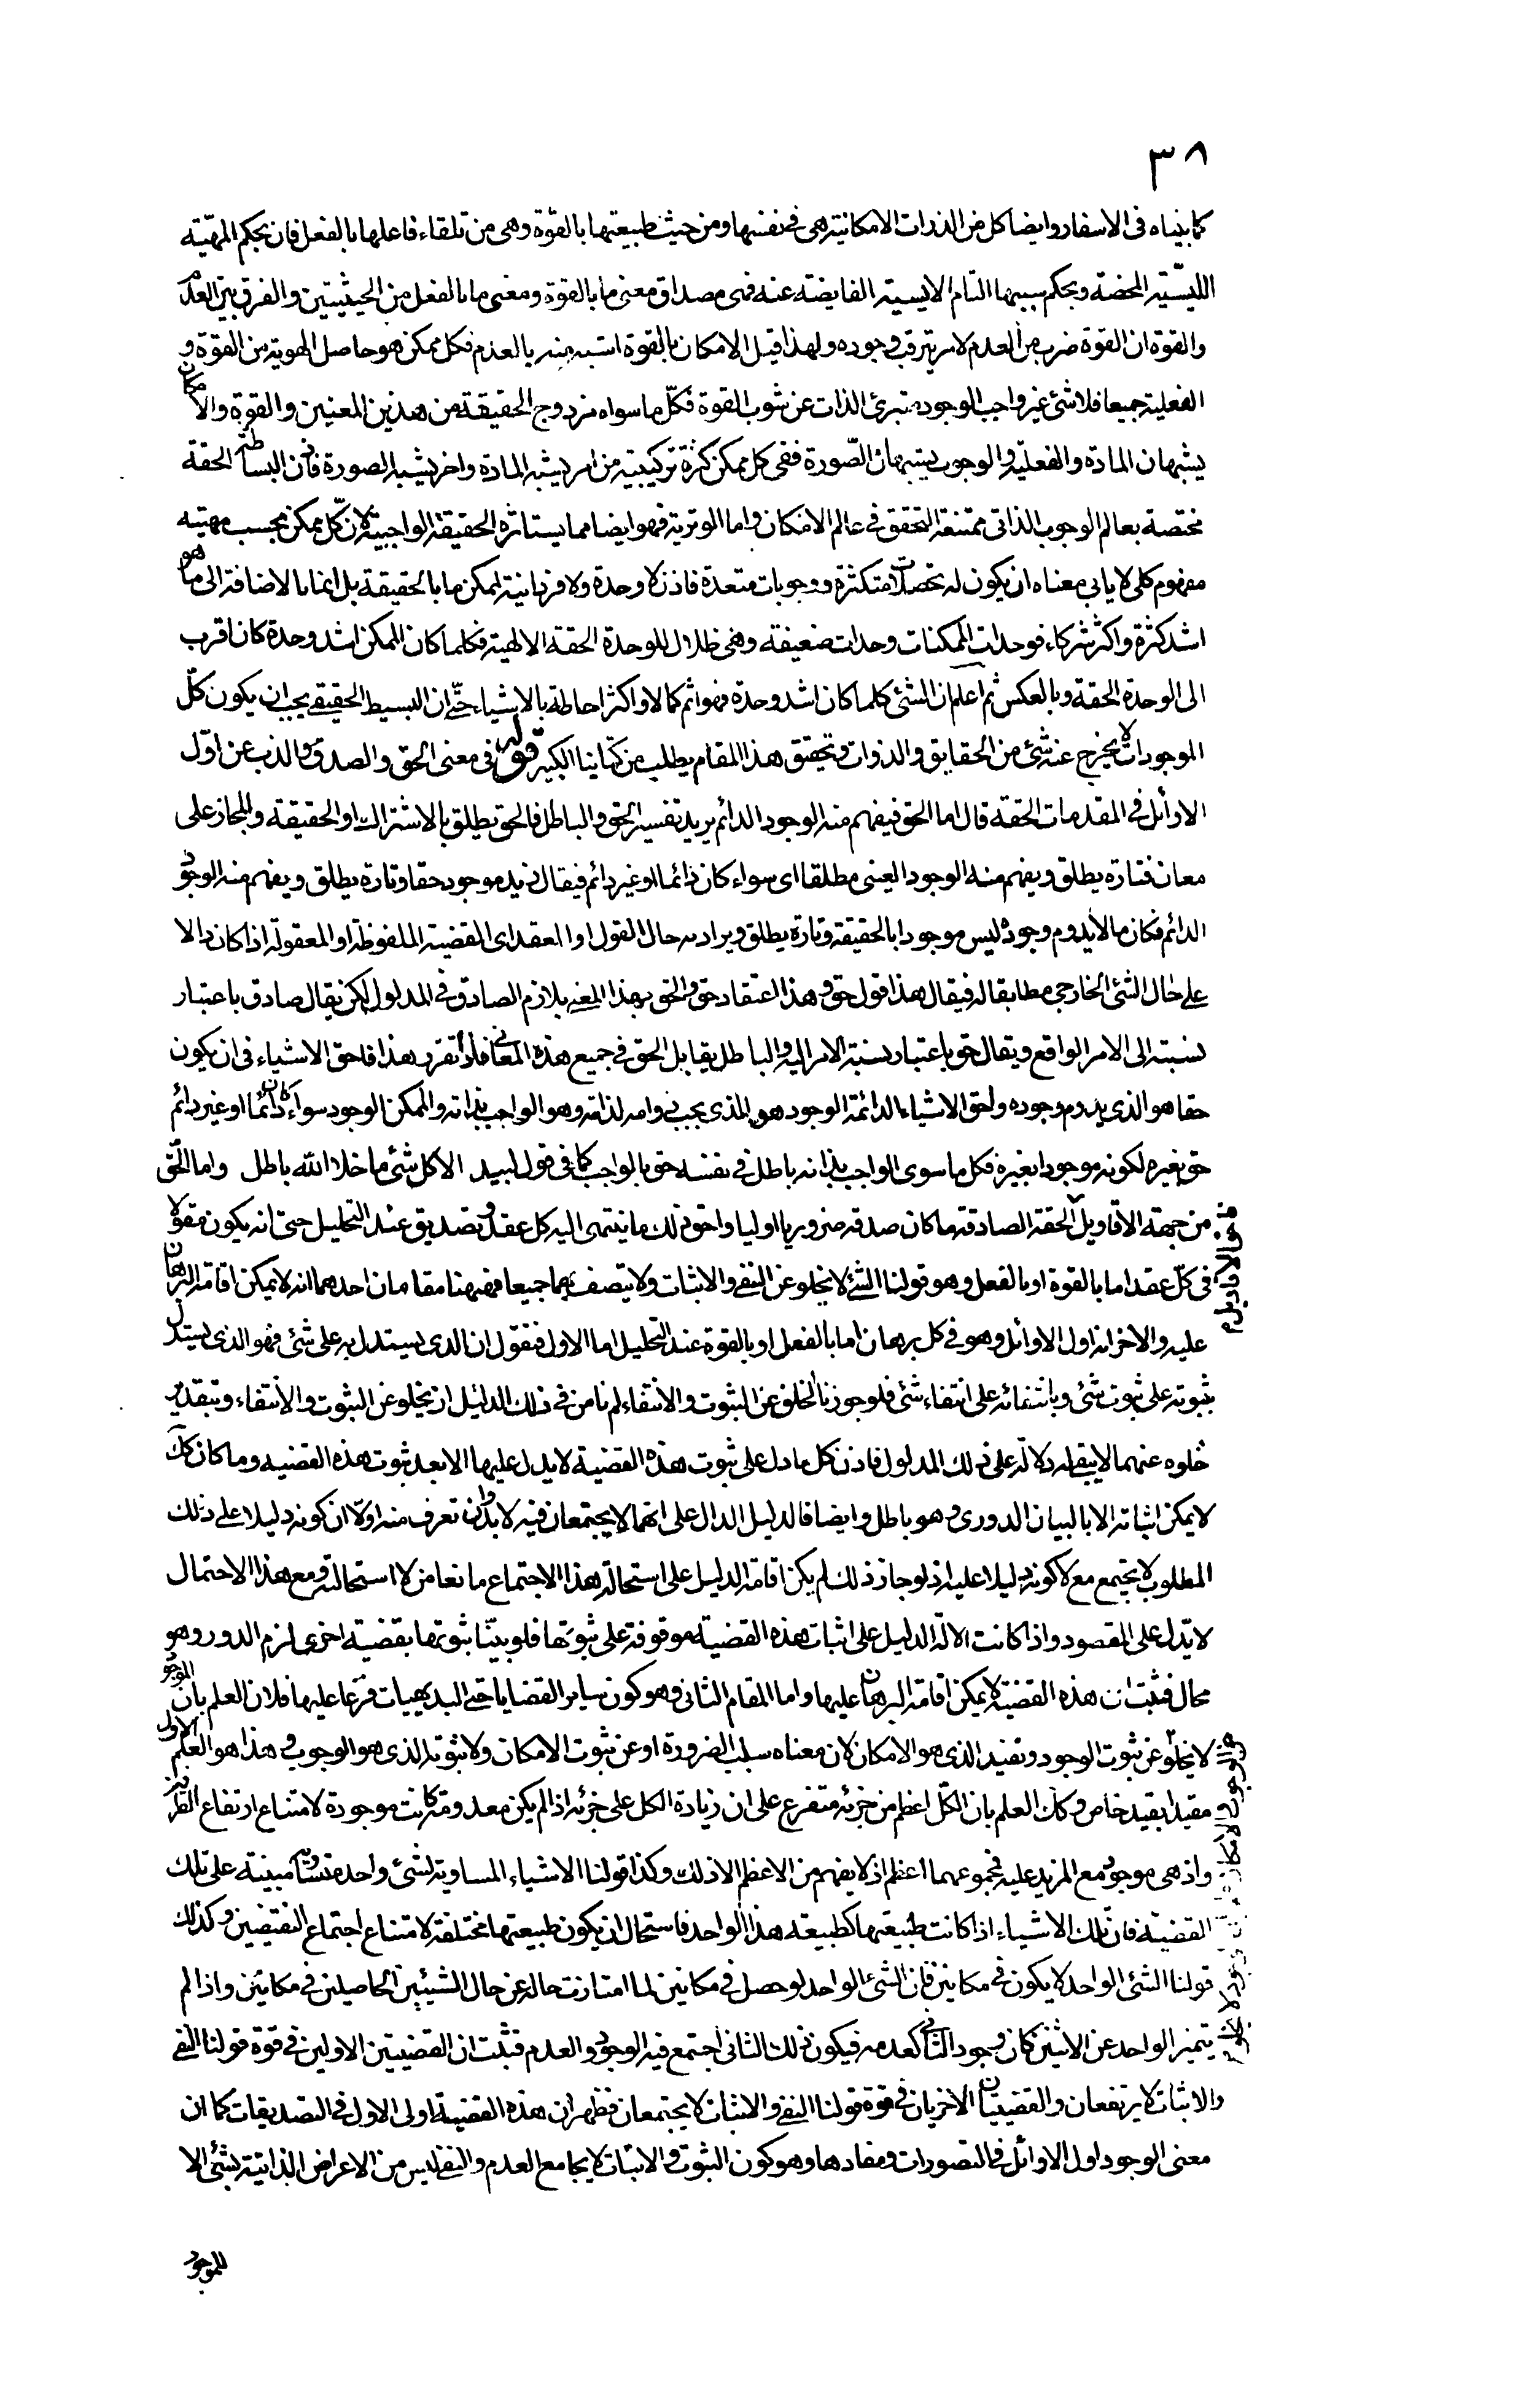 ٣٨
كما بيناه فى الاسفار وايضا كل من الذوات الامكانية هى فى نفسها ومن حيث طبيعتها بالقوة وهى من تلقاء فاعلها بالفعل فان بحكم المهيّة
الليسيّة المحضة وبحكم سببها التام الايسية الفايضة عنه فهى مصداق معنى ما بالقوة ومعنى ما بالفعل من الحيثيتين والفرق بين العدم
والقوة ان القوة ضرب من العدم لامر يترقب وجوده ولهذا قيل الامكان بالقوة اشبه منه بالعدم فكل ممكن هو حاصل الهوية من القوة و
الفعلية جميعا فلا شئ غير واجب الوجود متبرئ الذات عن شوب القوة فكلّ ما سواه مزدوج الحقيقة من هذين المعنيين والقوة والامكان
يشبهان المادة والفعلية والوجوب يشبهان الصّورة ففى كل ممكن كثرة تركيبية من امر يشبه المادة واخر يشبه الصورة فاذن البساطة الحقة
مختصة بعالم الوجوب الذاتى ممتنعة التحقق فى عالم الامكان واما الوترية فهو ايضا مما يستاثره الحقيقة الواجبية لان كلّ ممكن بحسب مهيته
مفهوم كلى لا يابى معناه ان يكون له تحصلات متكثرة ووجوبات متعددة فاذن لا وحدة ولا فردانية لممكن ما بالحقيقة بل انما بالاضافة الى ما هو
اشد كثرة واكثر شركاء فوحدات الممكنات وحدات ضعيفة وهى ظلال للوحدة الحقة الالهية فكلما كان الممكن اشد وحدة كان اقرب
الى الوحدة الحقة وبالعكس ثم اعلم ان الشئ كلما كان اشد وحدة فهو اتم كمالا واكثر احاطة بالاشياء حتّى ان البسيط الحقيقى يجب ان يكون كلّ
الموجودات لا يخرج عنه شئ من الحقايق والذوات وتحقيق هذا المقام يطلب من كتابنا الكبير قوله فى معنى الحق والصدق والذب عن اوّل
الاوائل فى المقدمات الحقة قال اما الحق فيفهم منه الوجود الدائم يريد تفسير الحق والباطل فالحق يطلق بالاشتراك او الحقيقة والمجاز على
معان فتارة يطلق ويفهم منه الوجود العينى مطلقا اى سواء كان دائما او غير دائم فيقال زيد موجود حقا وتارة يطلق ويفهم منه الوجود
الدائم فكان ما لا يدوم وجوده ليس موجودا بالحقيقة وتارة يطلق ويراد به حال القول او العقد اى القضية الملفوظة او المعقولة اذا كان دالا
على حال الشئ الخارجى مطابقا له فيقال هذا قول حق وهذا اعتقاد حق والحق بهذا المعنى يلازم الصادق فى المدلول لكن يقال صادق باعتبار
نسبته الى الامر الواقع ويقال حق باعتبار نسبة الامر اليه والباطل يقابل الحق فى جميع هذه المعانى فاذا تقرر هذا فاحق الاشياء فى ان يكون
حقا هو الذى يدوم وجوده واحق الاشياء الدائمة الوجود هو الذى يجب دوامه لذاته وهو الواجب بذاته والممكن الوجود سواء كان دائما او غير دائم
حق بغيره لكونه موجودا بغيره فكل ما سوى الواجب بذاته باطل فى نفسه حق بالواجب كما فى قول لبيد الا كل شئ ما خلا الله باطل واما الحق
من جهة الاقاويل الحقة الصادقة ما كان صدقه ضروريا اوليا واحق ذلك ما ينتهى اليه كل عقد وتصديق عند التحليل حتى انه يكون مقولا
فى كلّ عقد اما بالقوة او بالفعل وهو قولنا الشئ لا يخلو عن النفى والاثبات ولا يتصف بهما جميعا فههنا مقامان احدهما انه لا يمكن اقامة البرهان
عليه والاخر انه اول الاوائل وهو فى كل برهان اما بالفعل او بالقوة عند التحليل اما الاول فنقول ان الذى يستدل به على شئ فهو الذى يستدل
بثبوته على ثبوت شئ وبانتفائه على انتفاء شئ فلو جوزنا الخلو عن الثبوت والانتفاء لم نامن فى ذلك الدليل ان يخلو عن الثبوت والانتفاء وبتقدير
خلوه عنهما لا يبقى له دلالة على ذلك المدلول فاذن كل ما دل على ثبوت هذه القضية لا يدل عليها الا بعد ثبوت هذه القضيه وما كان كك
لا يمكن اثباته الا بالبيان الدورى وهو باطل وايضا فالدليل الدال على انهما لا يجتمعان فيه لا بد وان تعرف منه اولا ان كونه دليلا على ذلك
المطلوب لا يجتمع مع لا كونه دليلا عليه اذ لو جاز ذلك لم يكن اقامة الدليل على استحالة هذا الاجتماع مانعا من لا استحالته ومع هذا الاحتمال
لا يدل على المقصود واذا كانت دلالة الدليل على اثبات هذه القضية موقوفة على ثبوتها فلو بيّنا ثبوتها بقضية اخرى لزم الدور وهو
محال فثبت ان هذه القضية لا يمكن اقامة البرهان عليها واما المقام الثانى وهو كون ساير القضايا حتى البديهيات فرعا عليها فلان العلم بان الموجود
لا يخلو عن ثبوت الوجود وتفيد الذى هو الامكان لان معناه سلب الضرورة او عن ثبوت الامكان ولا ثبوته الذى هو الوجوب وهذا هو العلم الاول
مقيدا بقيد خاص وكك العلم بان الكلّ اعظم من جزئه متفرع على ان زيادة الكل على جزئه اذ الم يكن معدومة كانت موجودة لامتناع ارتفاع الطرفين
واذ هى موجود مع المزيد عليه فمجموعهما اعظم اذ لا يفهم من الاعظم الا ذلك وكذا قولنا الاشياء المساوية لشئ واحد متساوية مبينة على تلك
القضيّة فان تلك الاشياء اذا كانت طبيعتها كطبيعة هذا الواحد فاستحال ان يكون طبيعتها مختلفة لامتناع اجتماع النقيضين وكذلك
قولنا الشئ الواحد لا يكون فى مكانين فان الشئ الواحد لو حصل فى مكانين لما امتازت حاله عن حال الشيئين الحاصلين فى مكانين واذا لم
يتميز الواحد عن الاثنين كان وجود الثانى كعدمه فيكون ذلك الثانى اجتمع فيه الوجود والعدم فثبت ان القضيتين الاولين فى قوة قولنا النفى
والاثبات لا يرتفعان والقضيتان الاخريان فى قوة قولنا النفى والاثبات لا يجتمعان فظهر ان هذه القضية اولى الاول فى التصديقات كما ان
معنى الوجود اول الاوائل فى التصورات ومفادها وهو كون الثبوت والاثبات لا يجامع العدم والنفى ليس من الاعراض الذاتية بشئ الا
للموجود